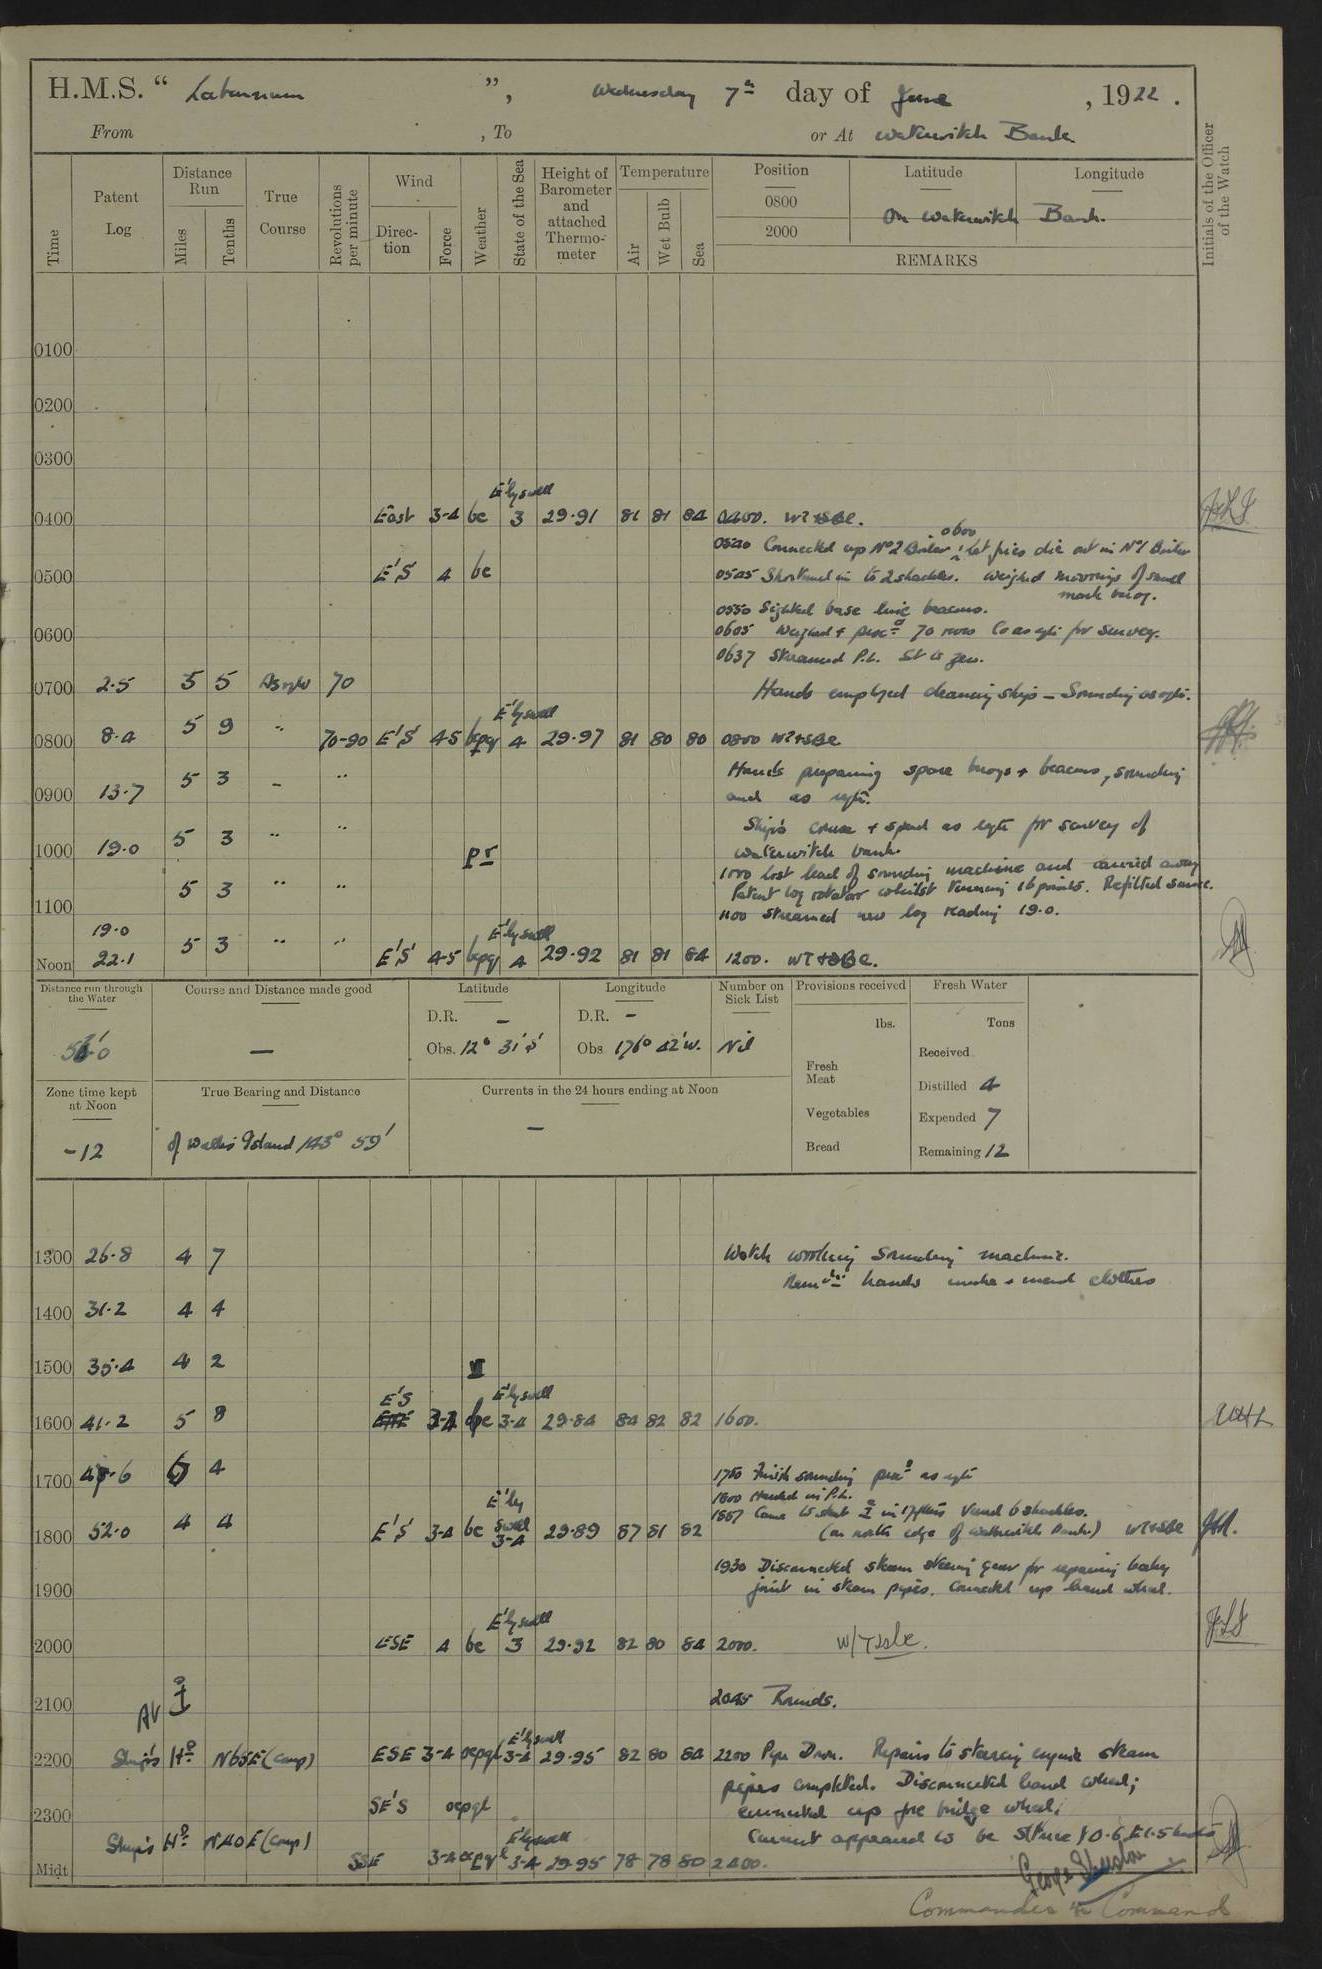 H.M.S. “ Laburnum ”, Wednesday 7th day of June , 1922 .
From , To or At Waterwitch Bank
Time
Patent Log
Distance Run
Miles
Tenths
True Course
Revolutions per minute
Wind
Direction
Force
Weather
State of the Sea
Height of Barometer and attached Thermometer
Temperature
Air
Wet Bulb
Sea
Position
0800
2000
Latitude
Longitude
On Waterwitch Bank.
REMARKS
Initials of the Officer of the Watch
0100
0200
0300
E'ly swell
0400 East 3-4 bc 3 29.91 81 81 84 0400.
0600
Connected up No 2 Boiler; let fires die out in No 1 Boiler
0500 E'S 4 bc 0545 Shortened in to 2 shackles. Weighed moorings of small
mark buoy.
0550 Sighted base line beacons.
0600 0605 Weighed + procd 70 revs Co as reqte for survey.
0637 Streamed P.L. Set to zero.
0700 2.5 5 5 As reqte 70 Hands employed cleaning ship - Sounding as reqte.
E'ly swell
0800 8.4 5 9 " 70-90 E'S 4-5 bcpq 4 29.97 81 80 80 0800
Hands preparing spare buoys + beacons, sounding
0900 13.7 5 3 - " and as reqte.
Ship's course + speed as reqte for survey of
1000 19.0 5 3 " " pr Waterwitch bank.
lost lead of sounding machine and carried away
5 3 " " Patent log rotator whilst turning 16 points. Refitted same.
1100 1100 Streamed new log reading 19.0.
19.0 E'ly swell
Noon 22.1 5 3 " " E'S 4-5 bcpq 4 29.92 81 81 84 1200.
Distance run through the Water
Course and Distance made good
—
Latitude
D.R. —
Obs. 12° 31' S
Longitude
D.R. —
Obs 176° 42' W.
Number on Sick List
Nil
Provisions received
lbs.
Fresh Meat
Vegetables
Bread
Fresh Water
Tons
Received
Distilled 4
Expended 7
Remaining 12
Zone time kept at Noon
-12
True Bearing and Distance
of Wallis Island 143° 59'
Currents in the 24 hours ending at Noon
—
1300 26.8 4 7 Watch working sounding machine.
Remdr hands make & mend clothes
1400 31.2 4 4
1500 35.4 4 2
E'S E'ly swell
1600 41.2 5 8 3-4 bc 3-4 29.84 84 82 82 1600.
1700 47.6 6 4 1750 Finish sounding procd as reqte
1800 Hauled in P.L.
E'ly swell
Came to in 17 fms Veered 6 shackles.
1800 52.0 4 4 E'S 3-4 bc 3-4 29.89 87 81 82 (on north edge of Waterwitch Bank.)
1930 Disconnected steam steering gear for repairing leaky
1900 joint in steam pipes. Connected up hand wheel.
E'ly swell
2000 ESE 4 bc 3 29.92 82 80 84 2000.
2100 At 2045 Rounds.
E'ly swell
2200 Ship's Hd N65E (Comp) ESE 3-4 ocpql 3-4 29.95 82 80 84 2200 Pipe Down. Repairs to steering engine steam
pipes completed. Disconnected hand wheel;
2300 SE'S ocpql connected up fore bridge wheel;
Ship's Hd N40E (Comp) E'ly swell Current appeared to be
Midt SSE 3-4 3-4 29.95 78 78 80 2400.
Commander in Command